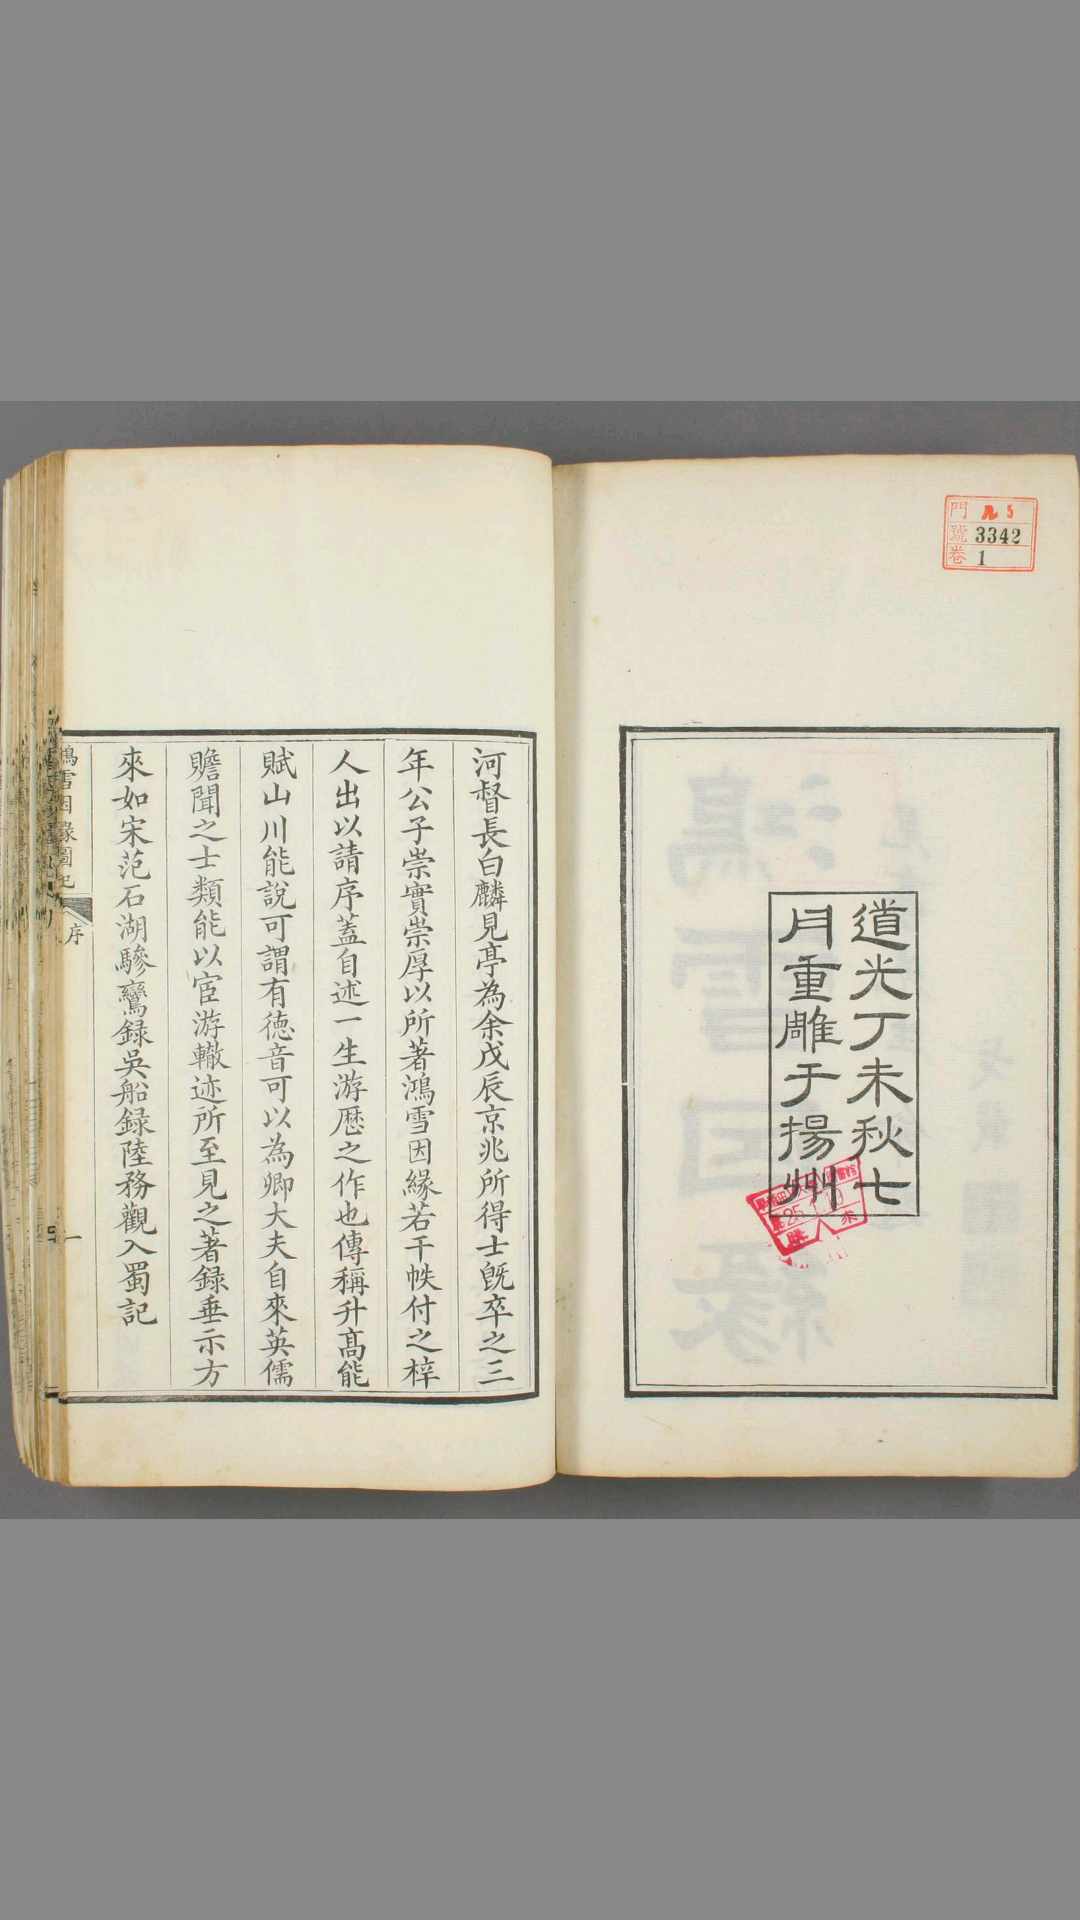 門 ル 5
號 3342
卷 1
道光丁未秋七
月重雕于揚州
河督長白麟見亭為余戊辰京兆所得士既卒之三
年公子崇實崇厚以所著鴻雪因緣若干帙付之梓
人出以請序蓋自述一生游歷之作也傳稱升高能
賦山川能說可謂有德音可以為卿大夫自來英儒
贍聞之士類能以宦游轍迹所至見之著録垂示方
來如宋范石湖驂鸞録吳船録陸務觀入蜀記
鴻雪因緣圖記
序
一